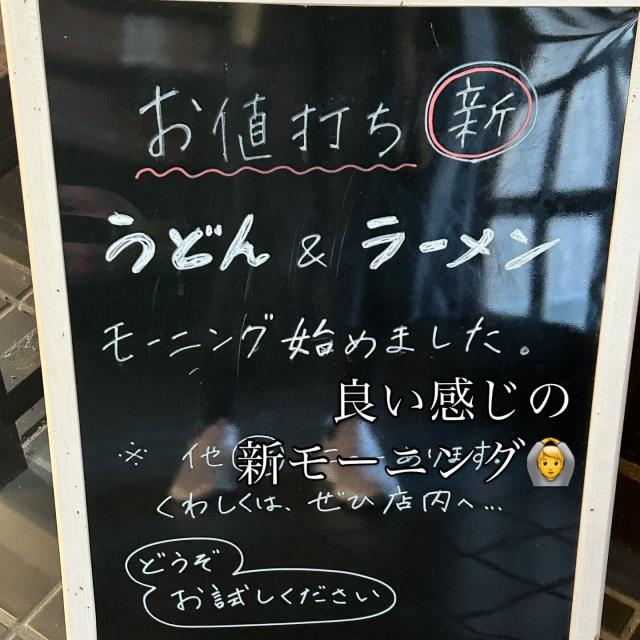 お値打ち 新
うどん & ラーメン
モーニング 始めました。
良い感じの
新モーニング🙆
※ 他
くわしくは、ぜひ店内へ…
どうぞ
お試しください